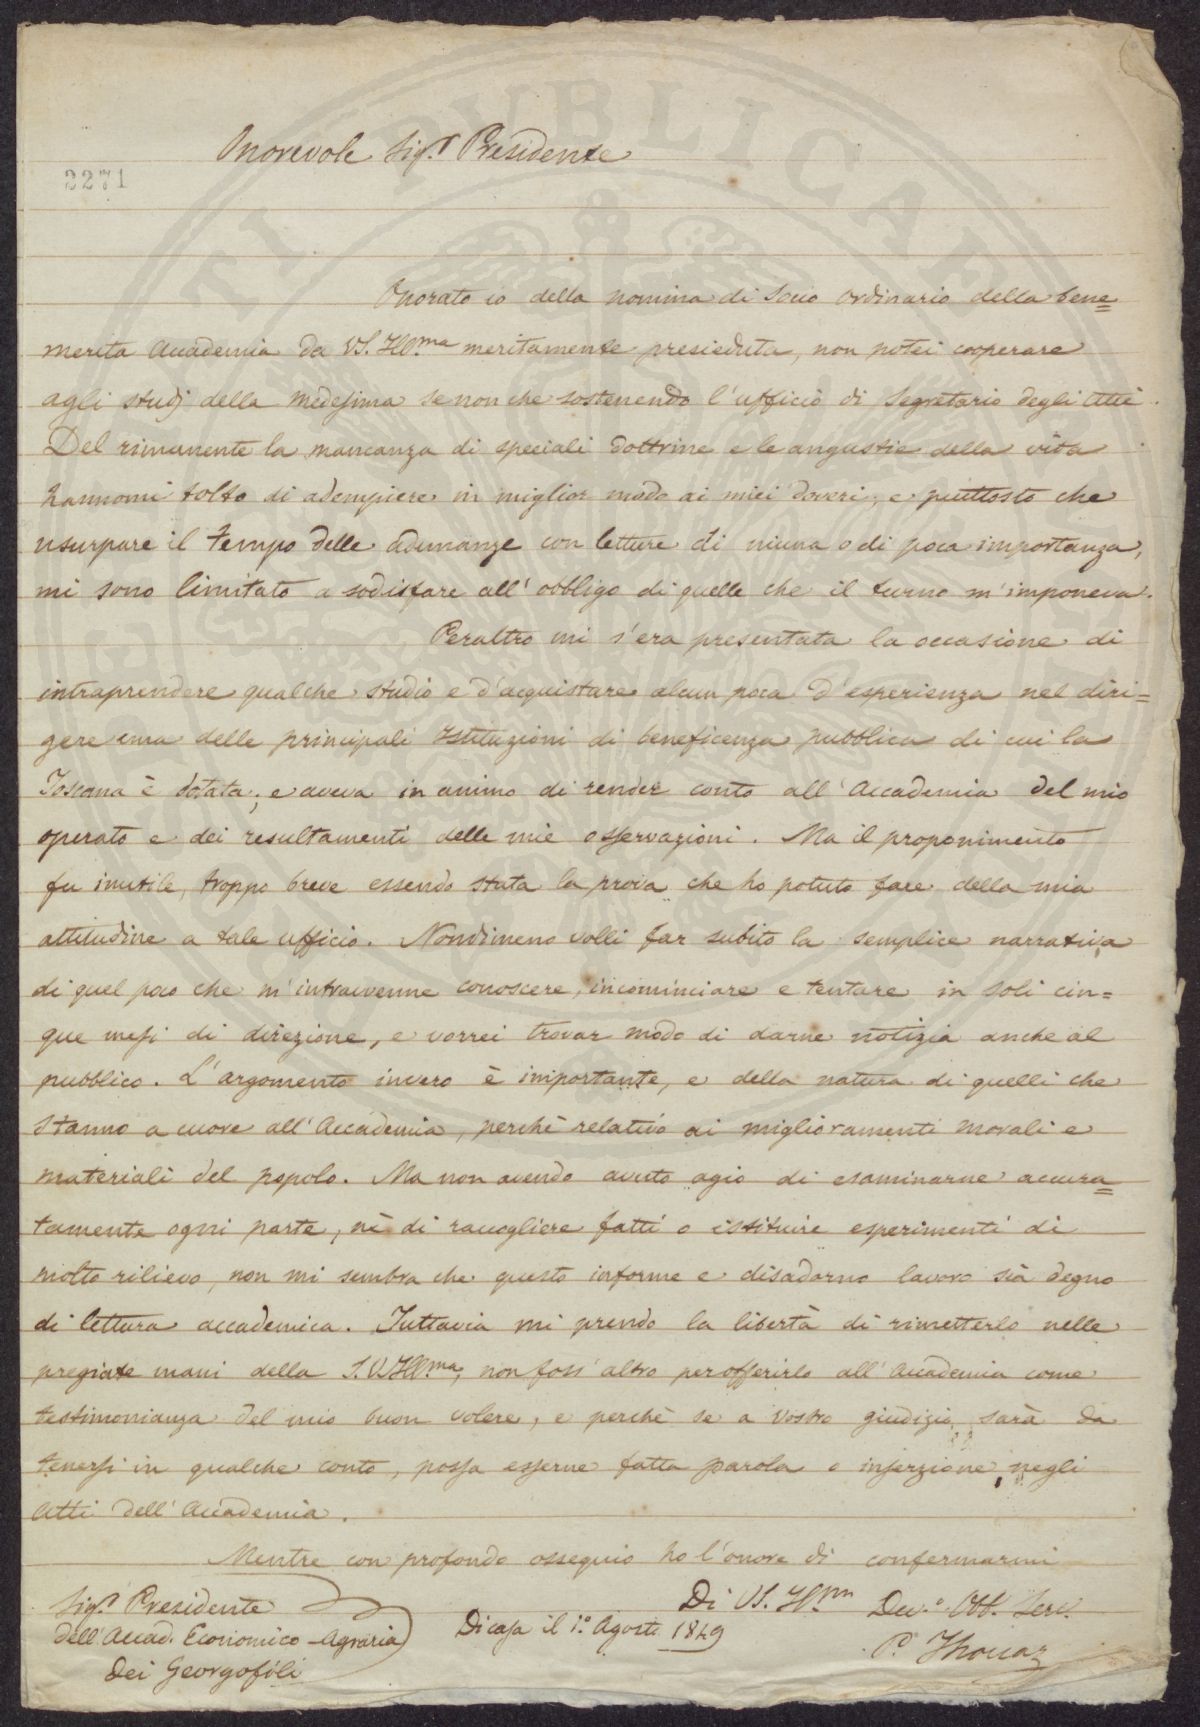 Onorevole Sig.r Presidente
2271
Onorato io della nomina di Socio Ordinario della bene=
merita Accademia da VS. Ill.ma meritamente presieduta, non potei cooperare
agli studj della medesima se non che sostenendo l'ufficio di Segretario degli Atti.
Del rimanente la mancanza di speciali dottrine e le angustie della vita
hannomi tolto di adempiere in miglior modo ai miei doveri; e piuttosto che
usurpare il tempo delle adunanze con letture di niuna o di poca importanza,
mi sono limitato a sodisfare all'obbligo di quelle che il turno m'imponeva.
Peraltro mi s'era presentata la occasione di
intraprendere qualche studio e d'acquistare alcun poca d'esperienza nel diri=
gere una delle principali Istituzioni di beneficenza pubblica di cui la
Toscana è dotata; e aveva in animo di render conto all'Accademia del mio
operato e dei resultamenti delle mie osservazioni. Ma il proponimento
fu inutile, troppo breve essendo stata la prova che ho potuto fare della mia
attitudine a tale ufficio. Nondimeno volli far subito la semplice narrativa
di quel poco che m'intravvenne conoscere, incominciare e tentare in soli cin=
que mesi di direzione, e vorrei trovar modo di darne notizia anche al
pubblico. L'argomento invero è importante, e della natura di quelli che
stanno a cuore all'Accademia, perchè relativo ai miglioramenti morali e
materiali del popolo. Ma non avendo avuto agio di esaminarne accura=
tamente ogni parte, nè di raccogliere fatti o istituire esperimenti di
molto rilievo, non mi sembra che questo informe e disadorno lavoro sia degno
di lettura accademica. Tuttavia mi prendo la libertà di rimetterlo nelle
pregiate mani della S.V.Ill.ma, non foss'altro per offerirlo all'Accademia come
testimonianza del mio buon volere, e perchè se a vostro giudizio sarà da
tenersi in qualche conto, possa esserne fatta parola o inserzione negli
Atti dell'Accademia.
Mentre con profondo ossequio ho l'onore di confermarmi
Di VS. Ill.ma Dev.o Obb. Serv.
Sig.r Presidente
dell'Accad. Economico-Agraria
dei Georgofili
Di casa il 1.o Agosto 1849
P. Thouar